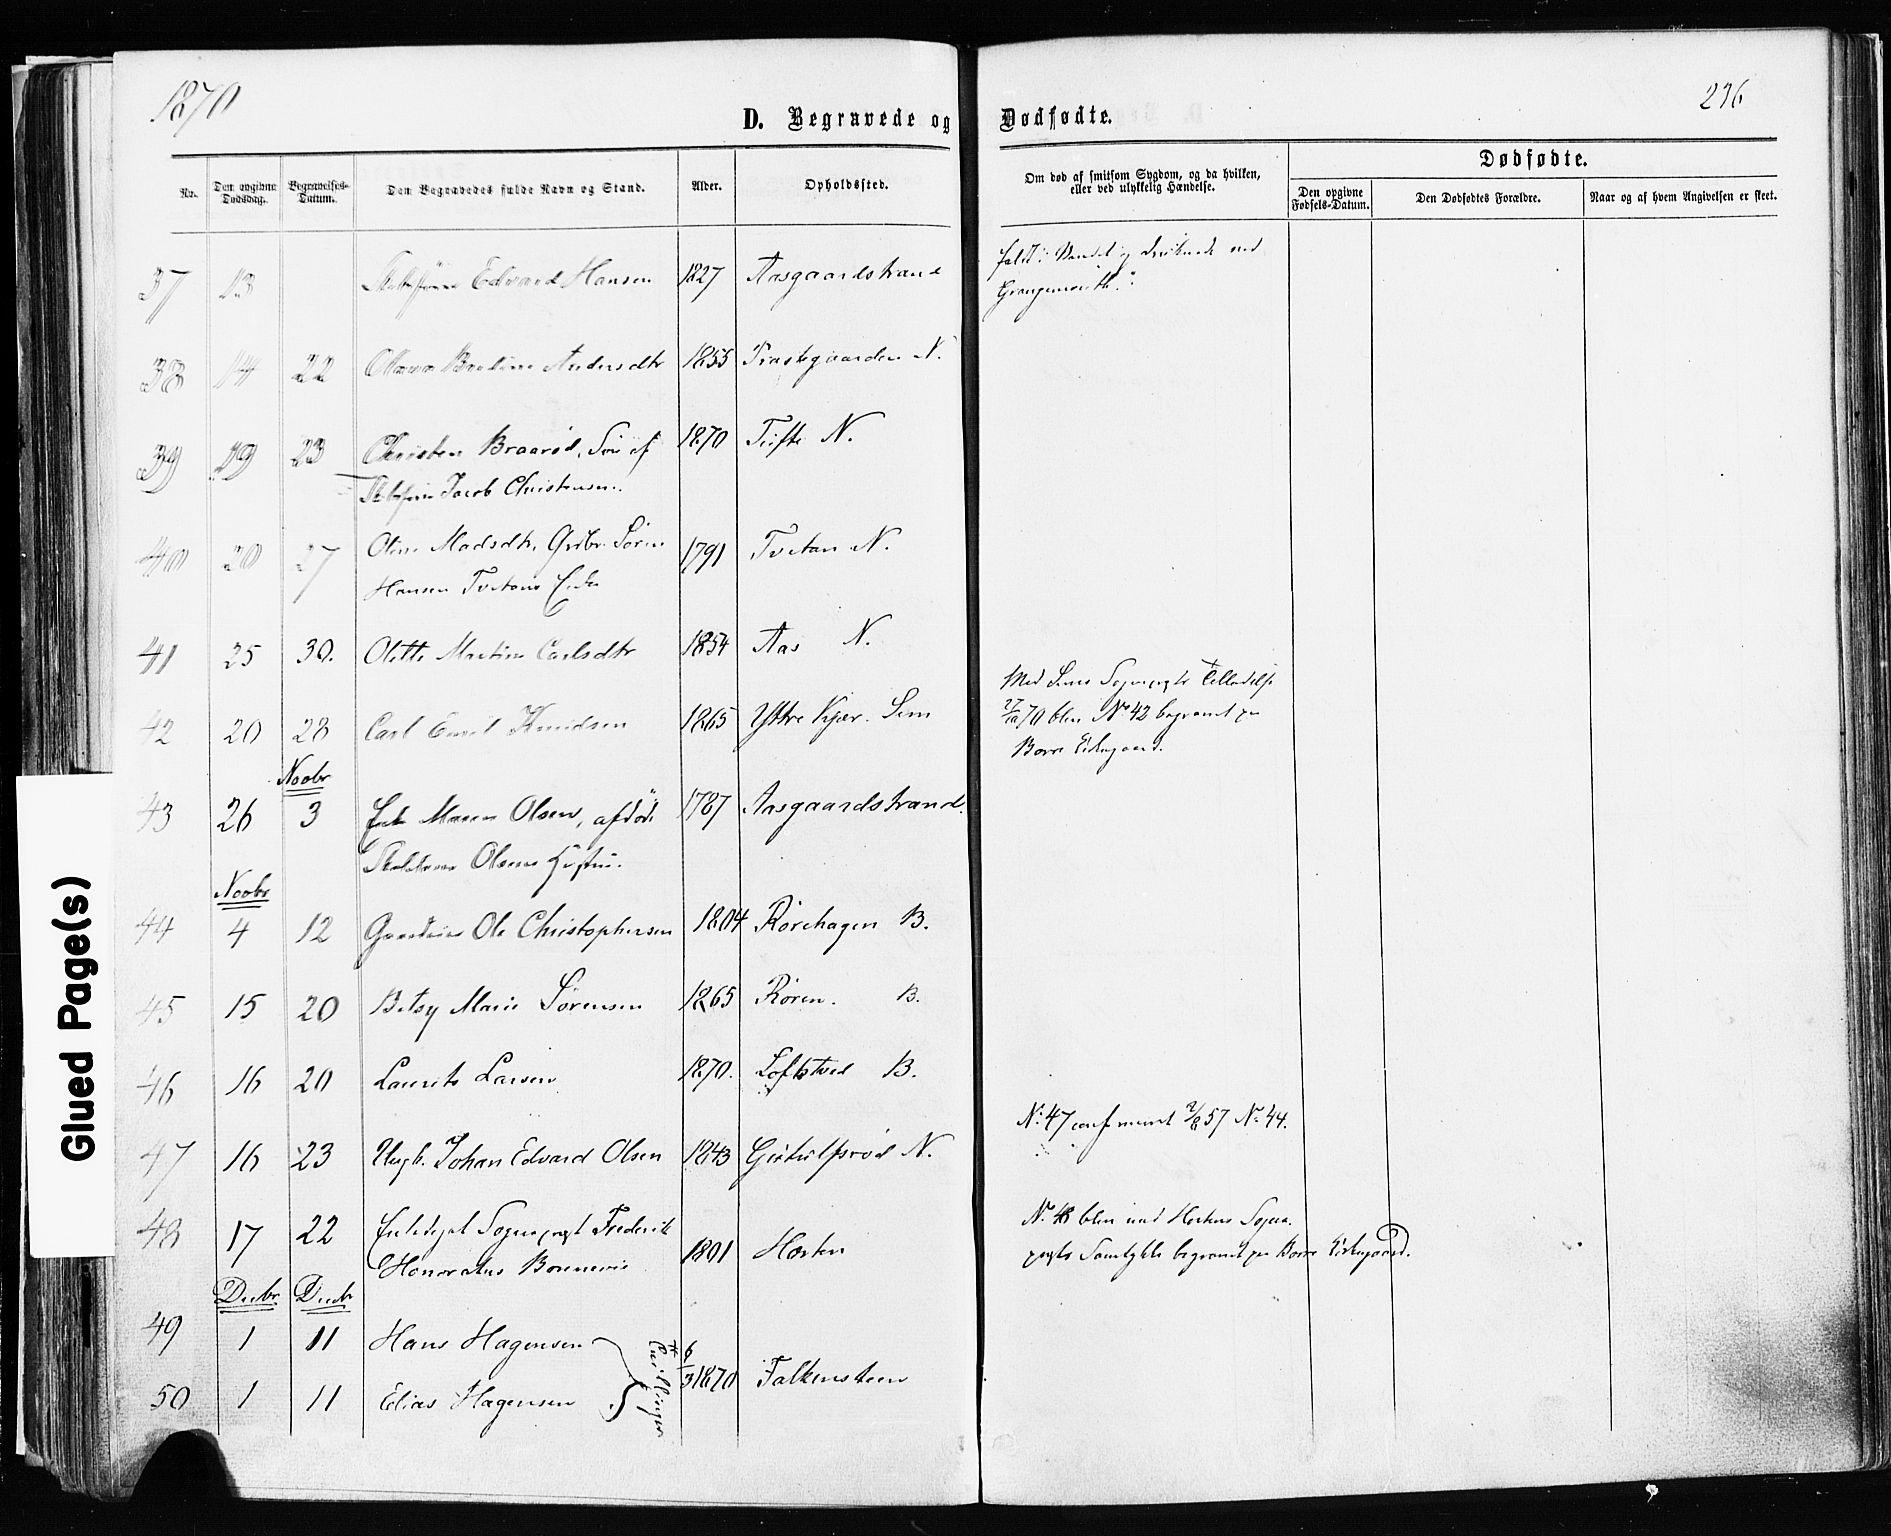 1870
236
D. Begravede og Dødfødte.
Nr.
Den opgivne Dødsdag.
Begravelses-Datum.
Den Begravedes fulde Navn og Stand.
Alder.
Opholdssted.
Om død af smitsom Sygdom, og da hvilken,
eller ved ulykkelig Hændelse.
Dødfødte.
Den opgivne
Fødsels-Datum.
Den Dødfødtes Forældre.
Naar og af hvem Angivelsen er skeet.
37 13 Edvard Hansen 1827 Aasgaardstrand
faldt i Vandet og druknede ved
Grangemouth.
38 14 22 Andersdtr 1855 Præstegaarden N.
39 19 23 Christen Braarød, Søn af 1870 Tufte N.
Jacob Christensen.
40 20 27 Oline Madsdtr, Gdbr. Søren 1791 Tvetan N.
Hansen Tvetans Enke
41 25 30. Olette Martine Carlsdtr 1854 Aas N.
42 20 28 Carl Emil Knudsen 1865 Yttre Kjær. Sem
Med Sems Sogneprests Tilladelse
27/10 70 blev No 42 begravet paa
Borre Kirkegaard.
Novbr
43 26 3 Enke Maren Olsen, afdøde 1787 Aasgaardstrand.
Olsens Hustru.
Novbr
44 4 12 Gaardmand Ole Christophersen 1804 Rørehagen B.
45 15 20 Betsy Marie Sørensen 1865 Røren. B.
46 16 20 Laurits Larsen 1870. Loftstved B.
47 16 23 Ungk. Johan Edvard Olsen 1843 N.
N. 47 conf 57 No 44.
48 17 22 Sogneprest Frederik
Honoratus Bonnevie 1801 Horten
N. 48 blev med Hortens Sogne-
prests Samtykke begravet paa Borre Kirkegaard.
Decbr Decbr
49 1 11 Hans Hagensen
50 1 11 Elias Hagensen
Tvillinger
6/3 1870 Falkensteen
Glued Page(s)